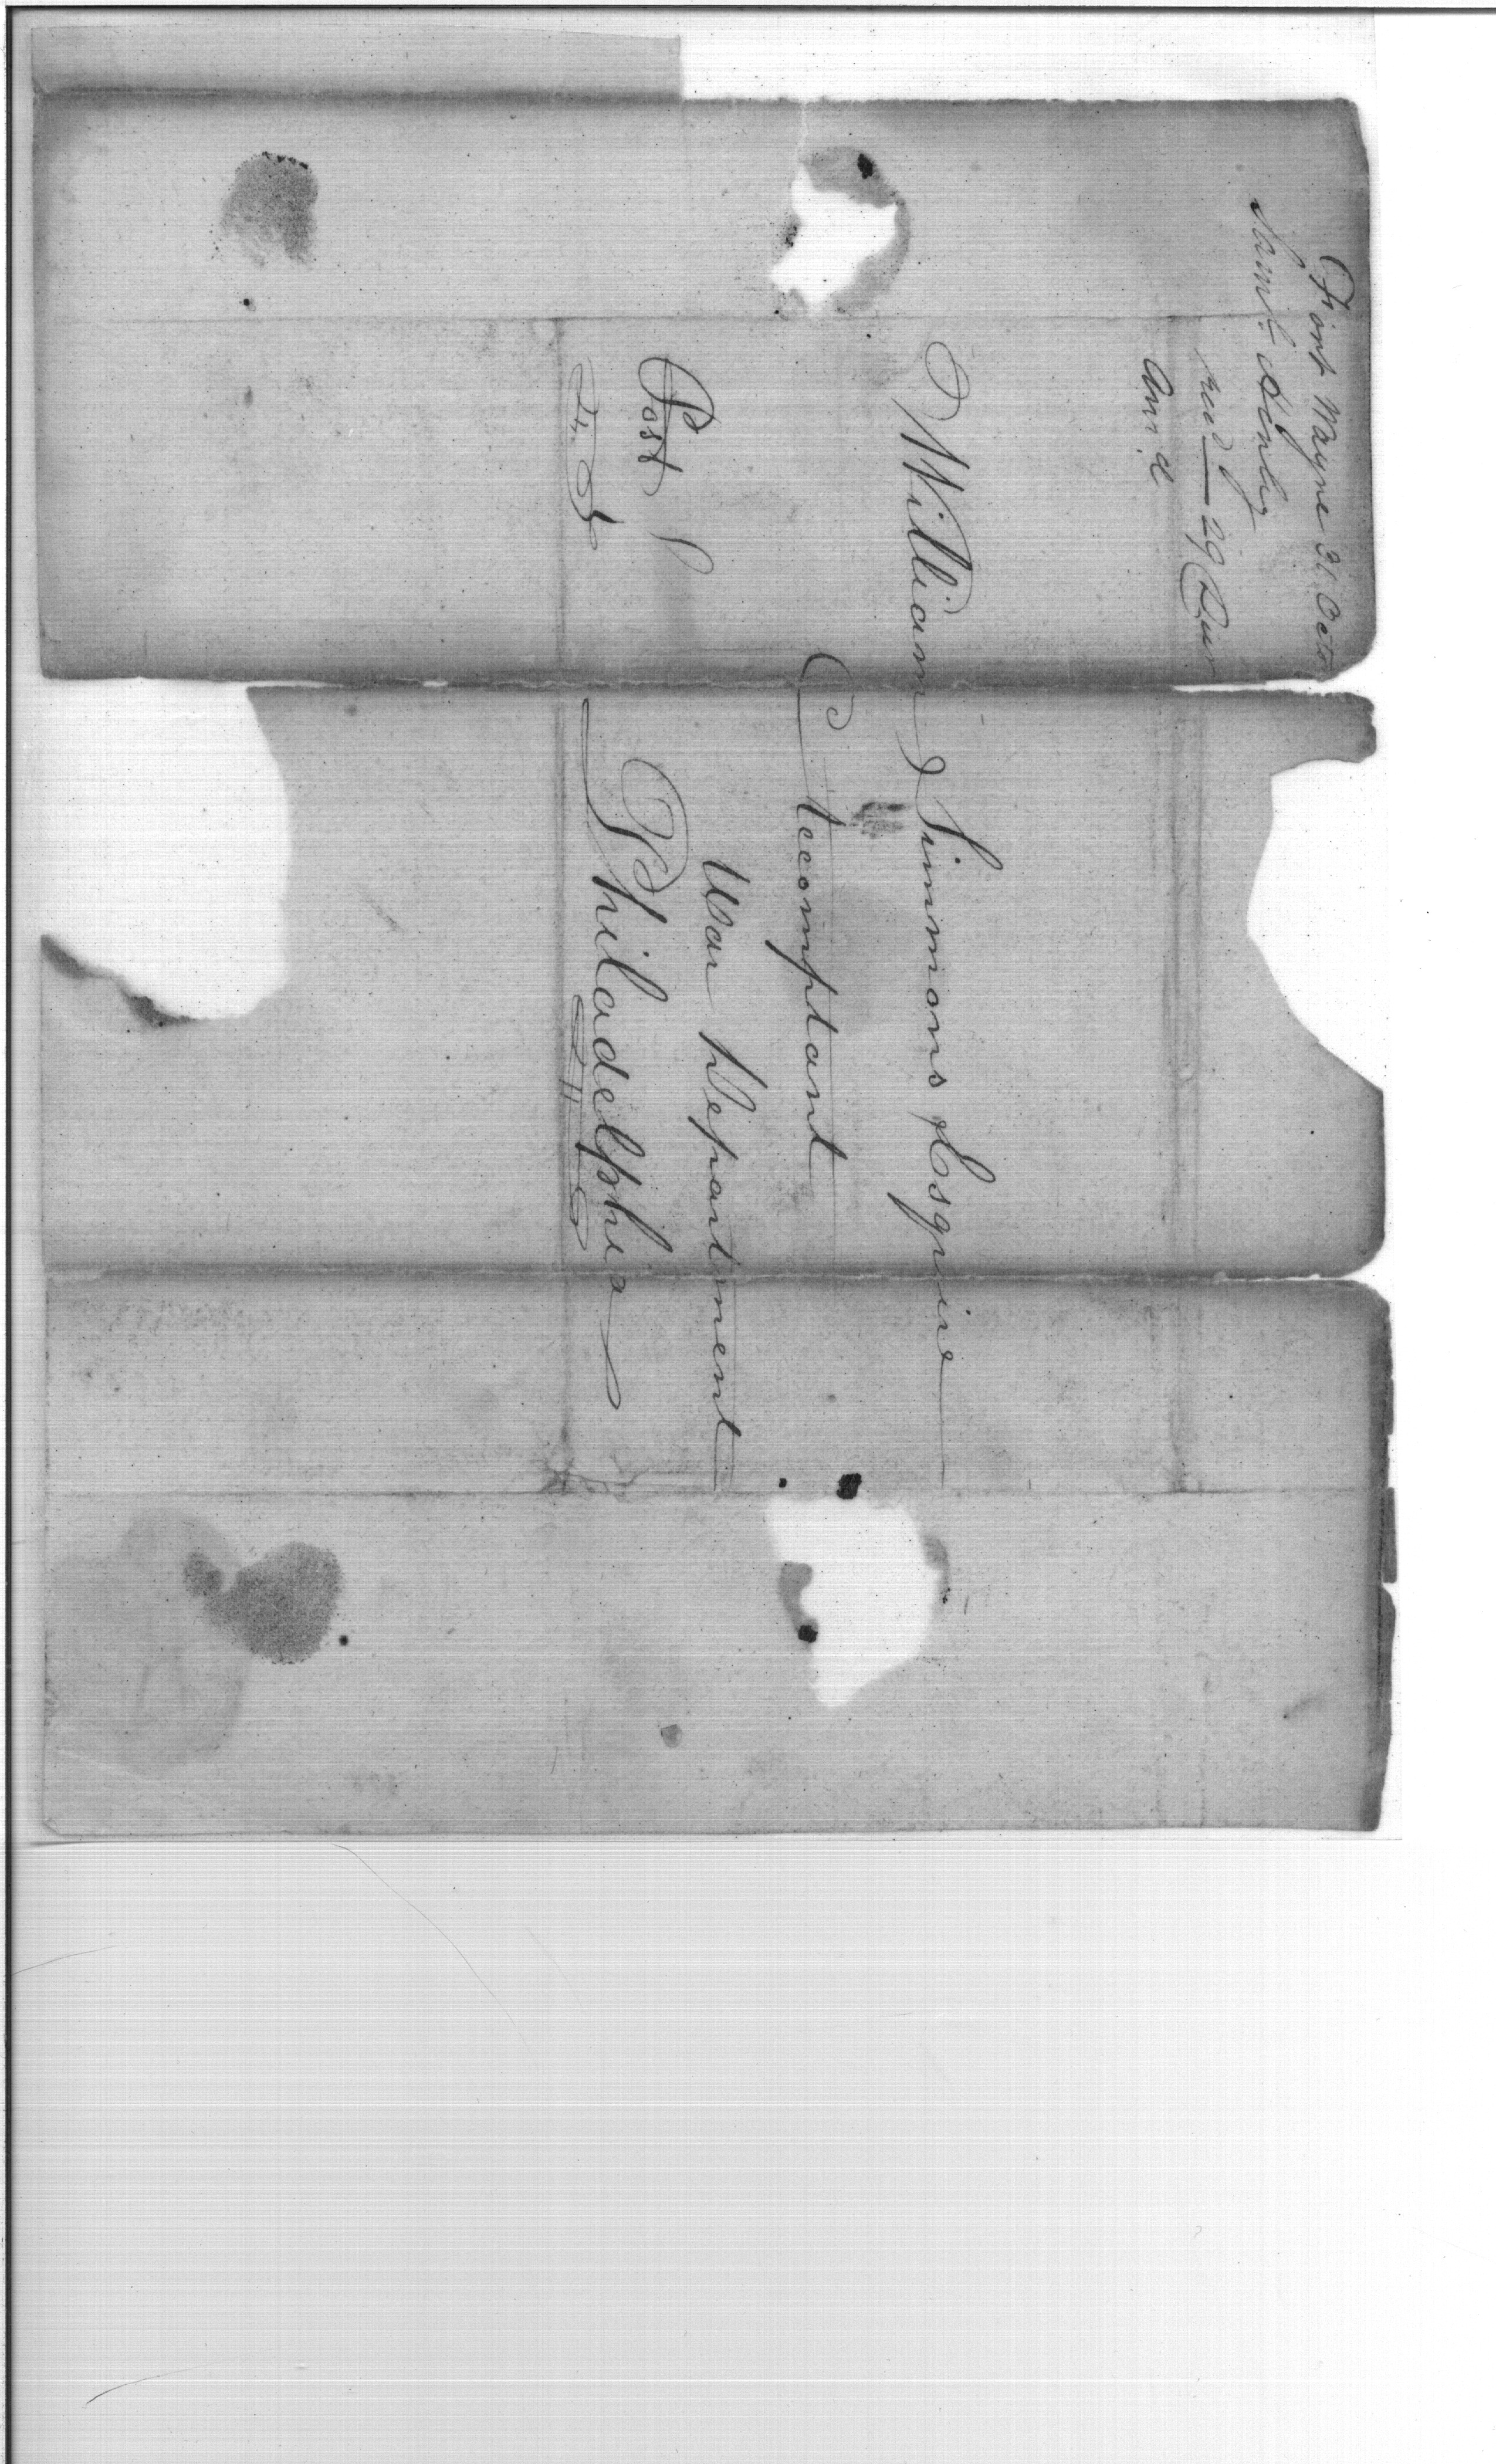 Fort Wayne 31 Octo
Saml. Henley
recd — 29 Decr
Ans.d
William Simmons Esquire
Accomptant
War Department
Post
Philadelphia